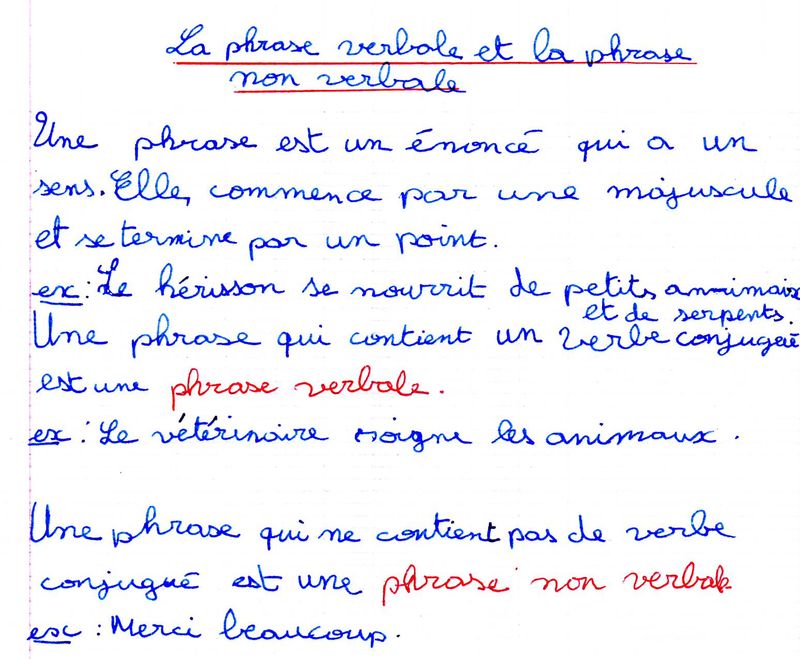 La phrase verbale et la phrase
non verbale
Une phrase est un énoncé qui a un
sens. Elle commence par une majuscule
et se termine par un point.
ex : Le hérisson se nourrit de petits animaux
et de serpents.
Une phrase qui contient un verbe conjugué
est une phrase verbale.
ex : Le vétérinaire soigne les animaux.
Une phrase qui ne contient pas de verbe
conjugué est une phrase non verbale
ex : Merci beaucoup.